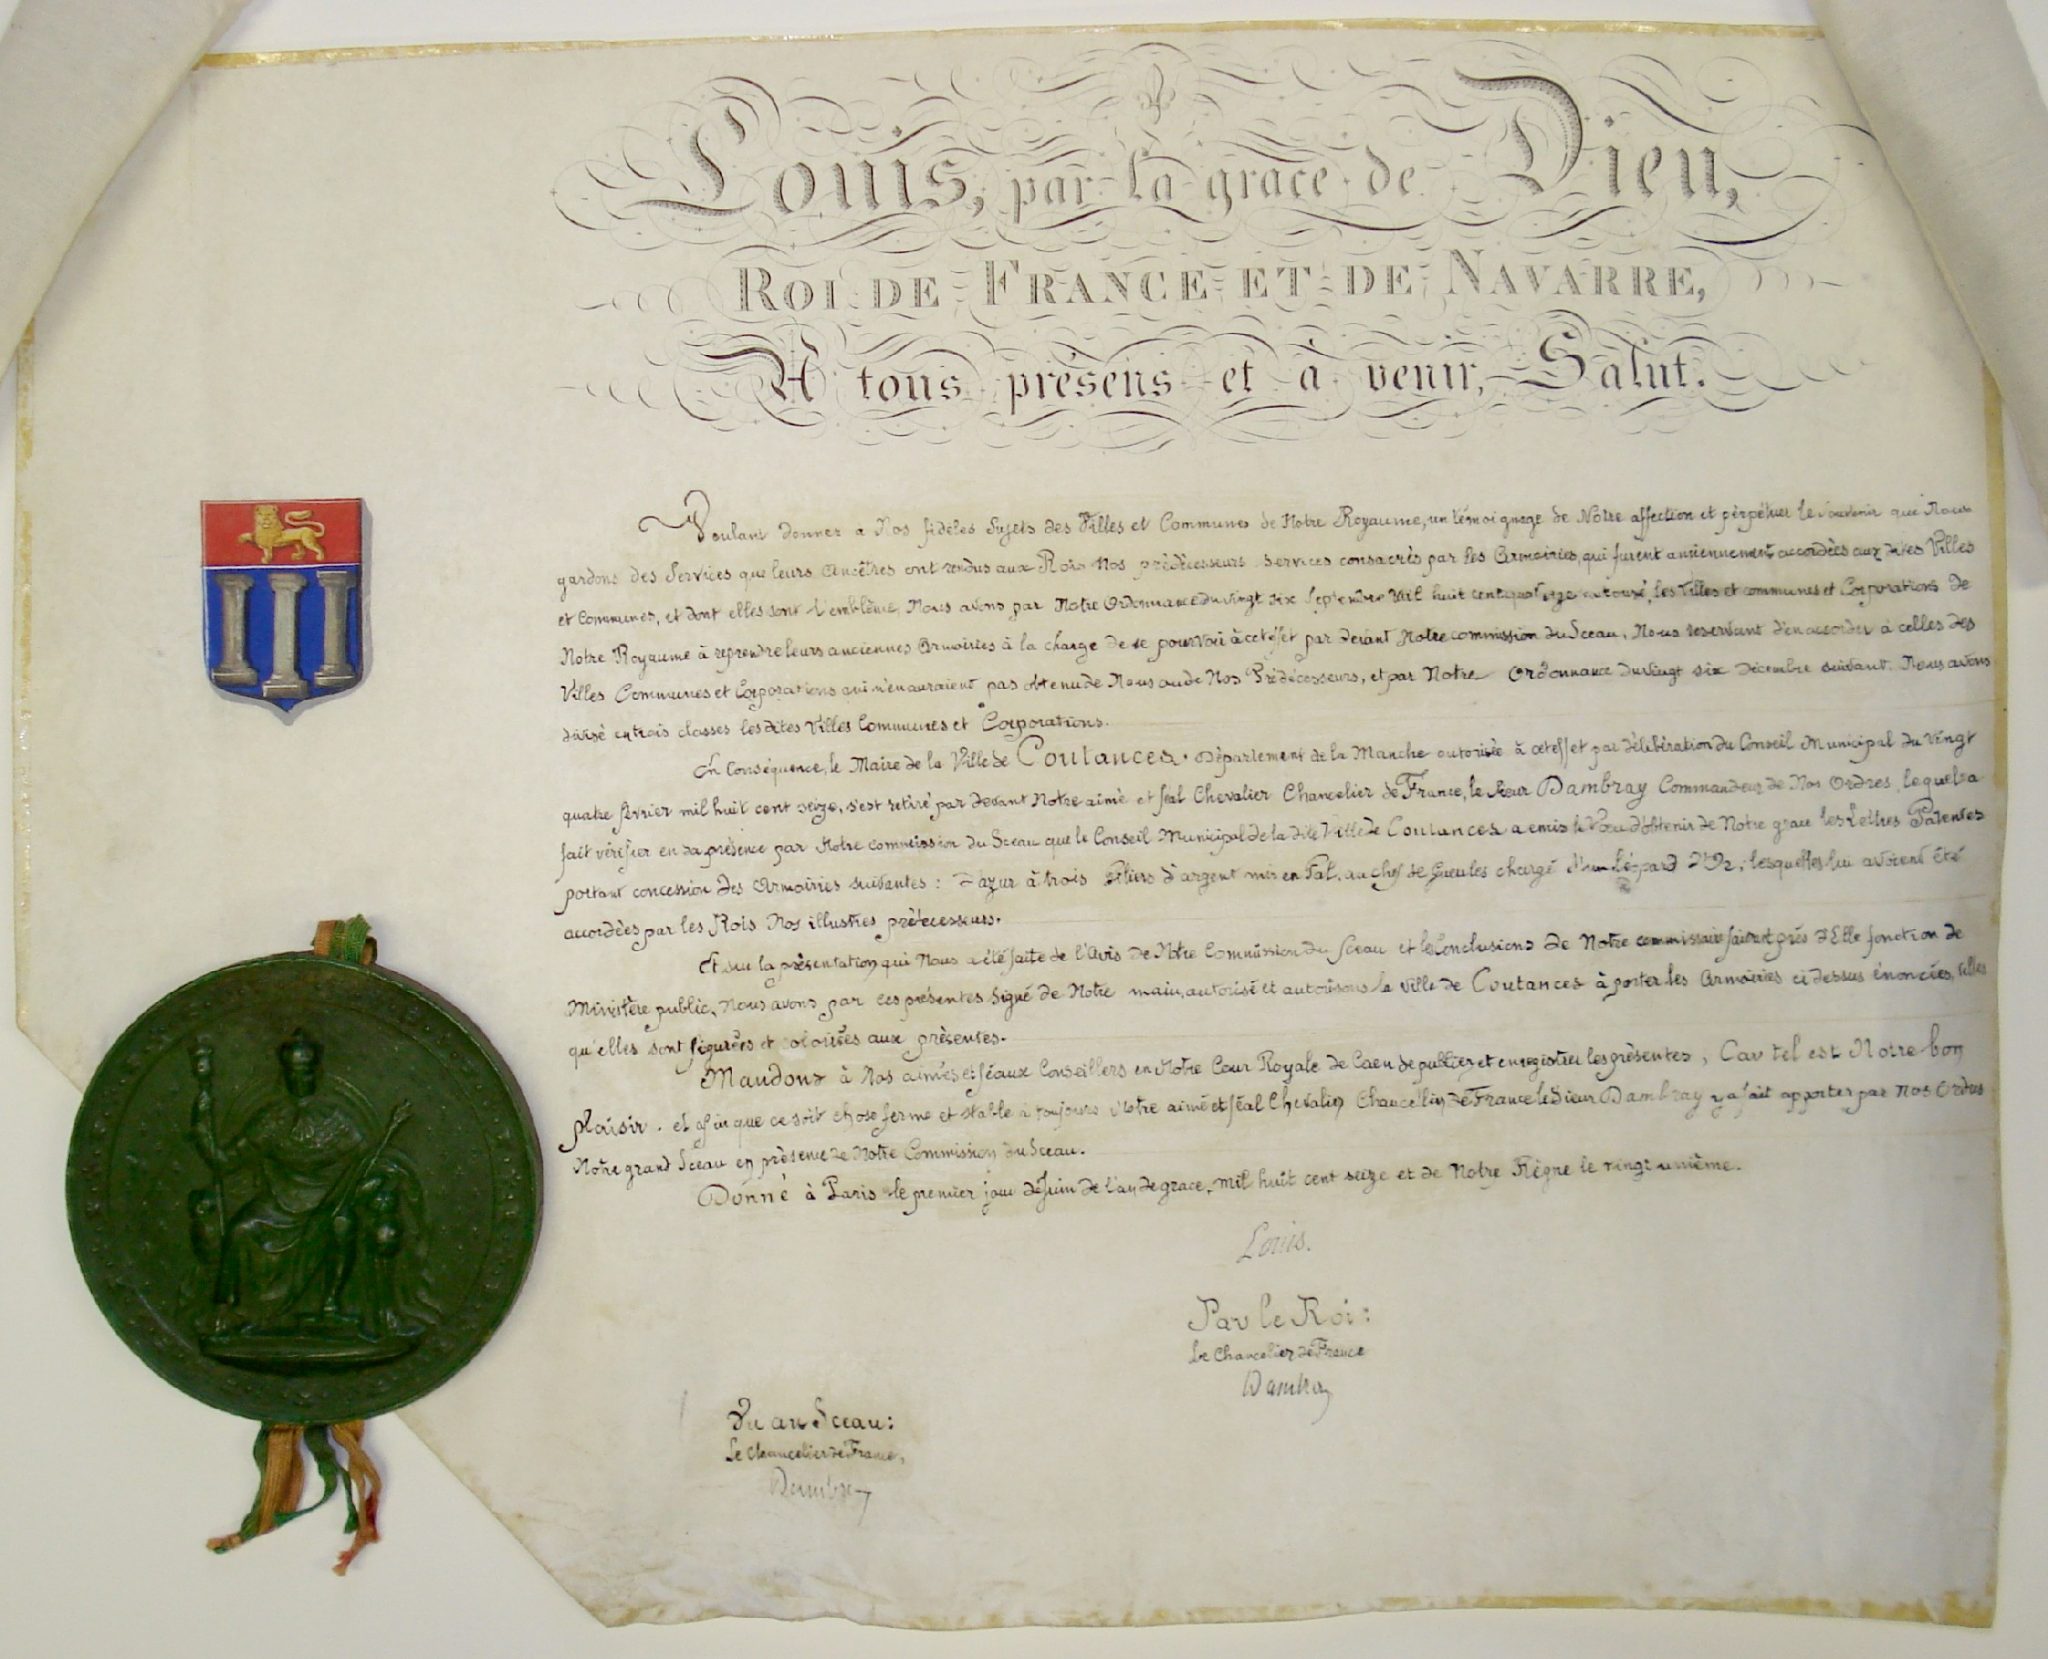 Louis, par la grace de Dieu,
ROI DE FRANCE ET DE NAVARRE,
A tous présens et à venir, Salut.
Voulant donner a Nos fidèles Sujets des Villes et Communes de Notre Royaume, un témoignage de Notre affection et perpétuer le Souvenir que Nous
gardons des Services que leurs Ancêtres ont rendus aux Rois Nos prédécesseurs Services consacrés par les Armoiries, qui furent anciennement accordées aux dites Villes
et Communes, et dont elles sont l'emblême, Nous avons par Notre Ordonnance du vingt six Septembre Mil huit cent quatorze autorisé, les Villes et communes et Corporations de
Notre Royaume à reprendre leurs anciennes Armoiries à la charge de se pourvoir à cet effet par devant Notre commission du Sceau, Nous reservant d'en accorder à celles des
Villes Communes et Corporations qui n'en auraient pas obtenu de Nous ou de Nos Prédécesseurs, et par Notre Ordonnance du vingt six décembre suivant. Nous avons
divisé en trois classes les dites Villes Communes et Corporations.
En Conséquence, le Maire de la Ville de Coutances, Département de la Manche autorisé à cet effet par délibération du Conseil Municipal du Vingt
quatre février mil huit cent seize, s'est retiré par devant Notre aimé et féal Chevalier Chancelier de France, le Sieur Dambray Commandeur de Nos Ordres, lequel a
fait vérifier en sa présence par Notre commission du Sceau que le Conseil Municipal de la dite Ville de Coutances a emis le Voeu d'obtenir de Notre grace les Lettres Patentes
portant concession des Armoiries suivantes : d'azur à trois Piliers d'argent mis en Fal, au chef de Gueules chargé d'un Léopard d'Or, lesquelles lui avoient été
accordées par les Rois Nos illustres prédécesseurs.
Et sur la présentation qui Nous a été faite de l'Avis de Notre Commission du Sceau et les Conclusions de Notre commissaire faisant près d'Elle fonction de
Ministère public, Nous avons par ces présentes Signé de Notre main, autorisé et autorisons la Ville de Coutances à porter les Armoiries ci dessus énoncées, telles
qu'elles sont figurées et coloriées aux présentes.
Mandons à Nos aimés et féaux Conseillers en Notre Cour Royale de Caen de publier et enregistrer les présentes, Car tel est Notre bon
plaisir. et afin que ce soit chose ferme et stable à toujours Notre aimé et féal Chevalier Chancelier de France le Sieur Dambray y a fait apporter par Nos Ordres
Notre grand Sceau en présence de Notre Commission du Sceau.
Donné à Paris le premier jour de Juin de l'an de grace, mil huit cent seize et de Notre Règne le vingt unième.
Louis.
Par le Roi :
Le Chancelier de France
Dambray
Vu au Sceau :
Le Chancelier de France,
Dambray